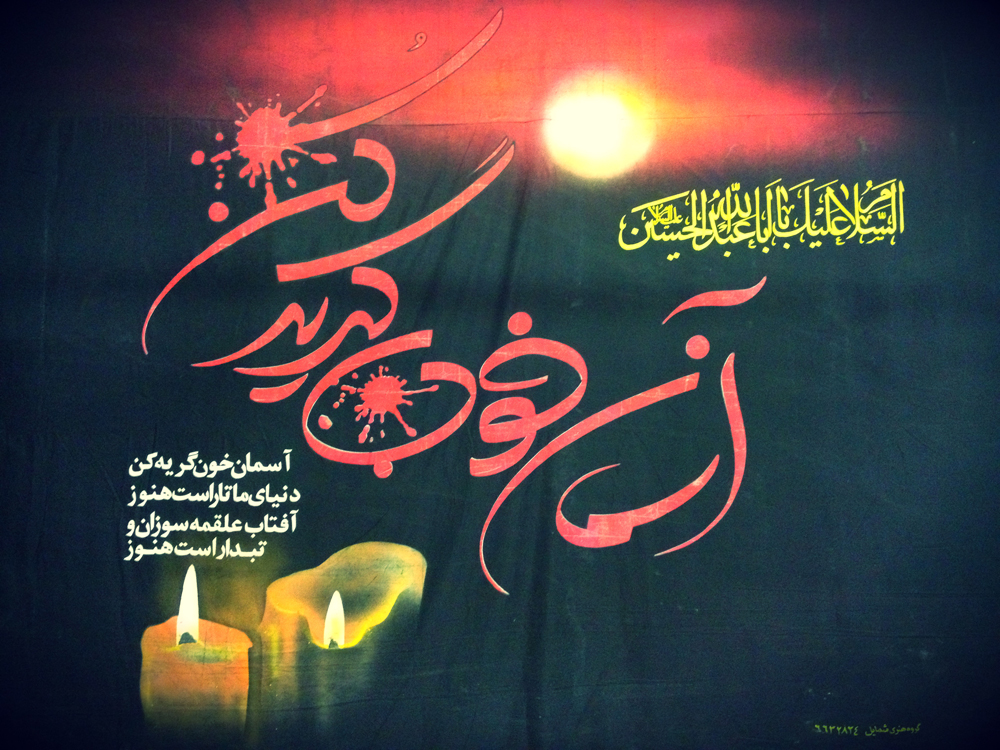 السلام علیک یا اباعبدالله الحسین علیه السلام
آسمان خون گریه کن
آسمان خون گریه کن
دنیای ما تار است هنوز
آفتاب علقمه سوزان و
تبدار است هنوز
گروه هنری شمایل ٦٦٣٢٨٣٤